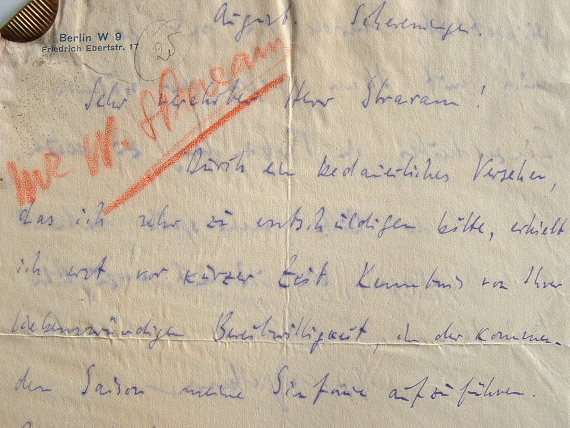 August. Scheveningen.
Berlin W 9
Friedrich Ebertstr. 17
Sehr verehrter Herr Straram!
Durch ein bedauerliches Versehen,
das ich sehr zu entschuldigen bitte, erhielt
ich erst vor kurzer Zeit Kenntnis von Ihrer
liebenswürdigen Bereitwilligkeit, in der kommen-
den Saison meine Sinfonie aufzuführen.